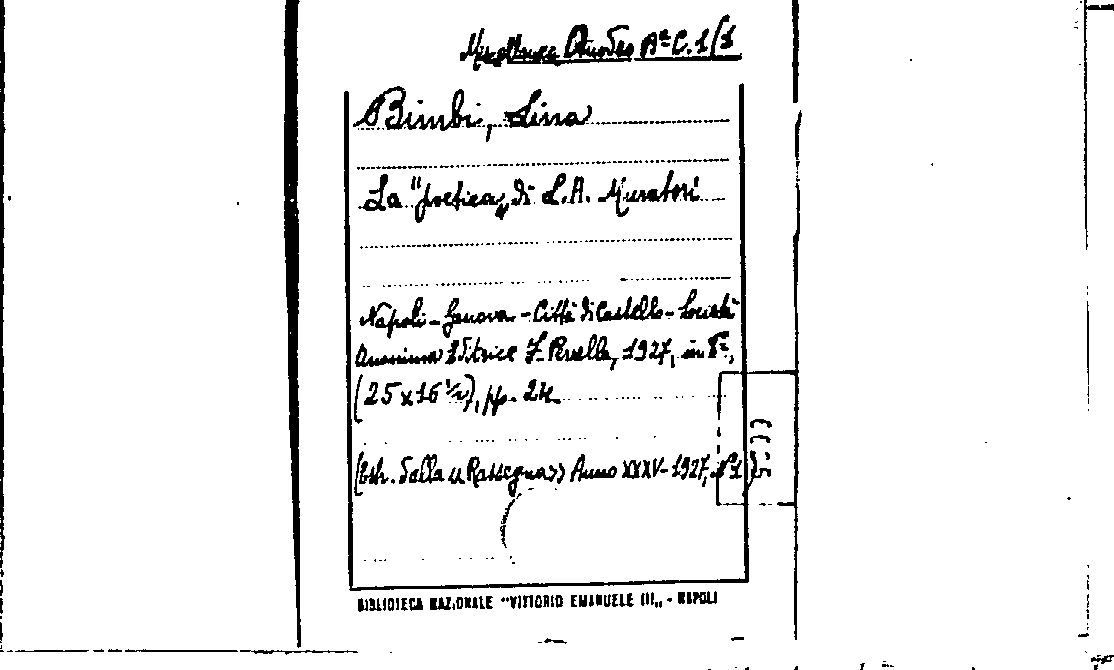 Miscellanea A^a C.1/1
Bimbi, Lina
La "poetica„ di L.A. Muratori
Napoli - Genova - Città di Castello - Società
Anonima Editrice F. Perrella, 1927, in 8°,
(25 x 16 ½), pp. 24.
(Estr. dalla « Rassegna» Anno XXXV - 1927, n° 1)
BIBLIOTECA NAZIONALE "VITTORIO EMANUELE III„ - NAPOLI